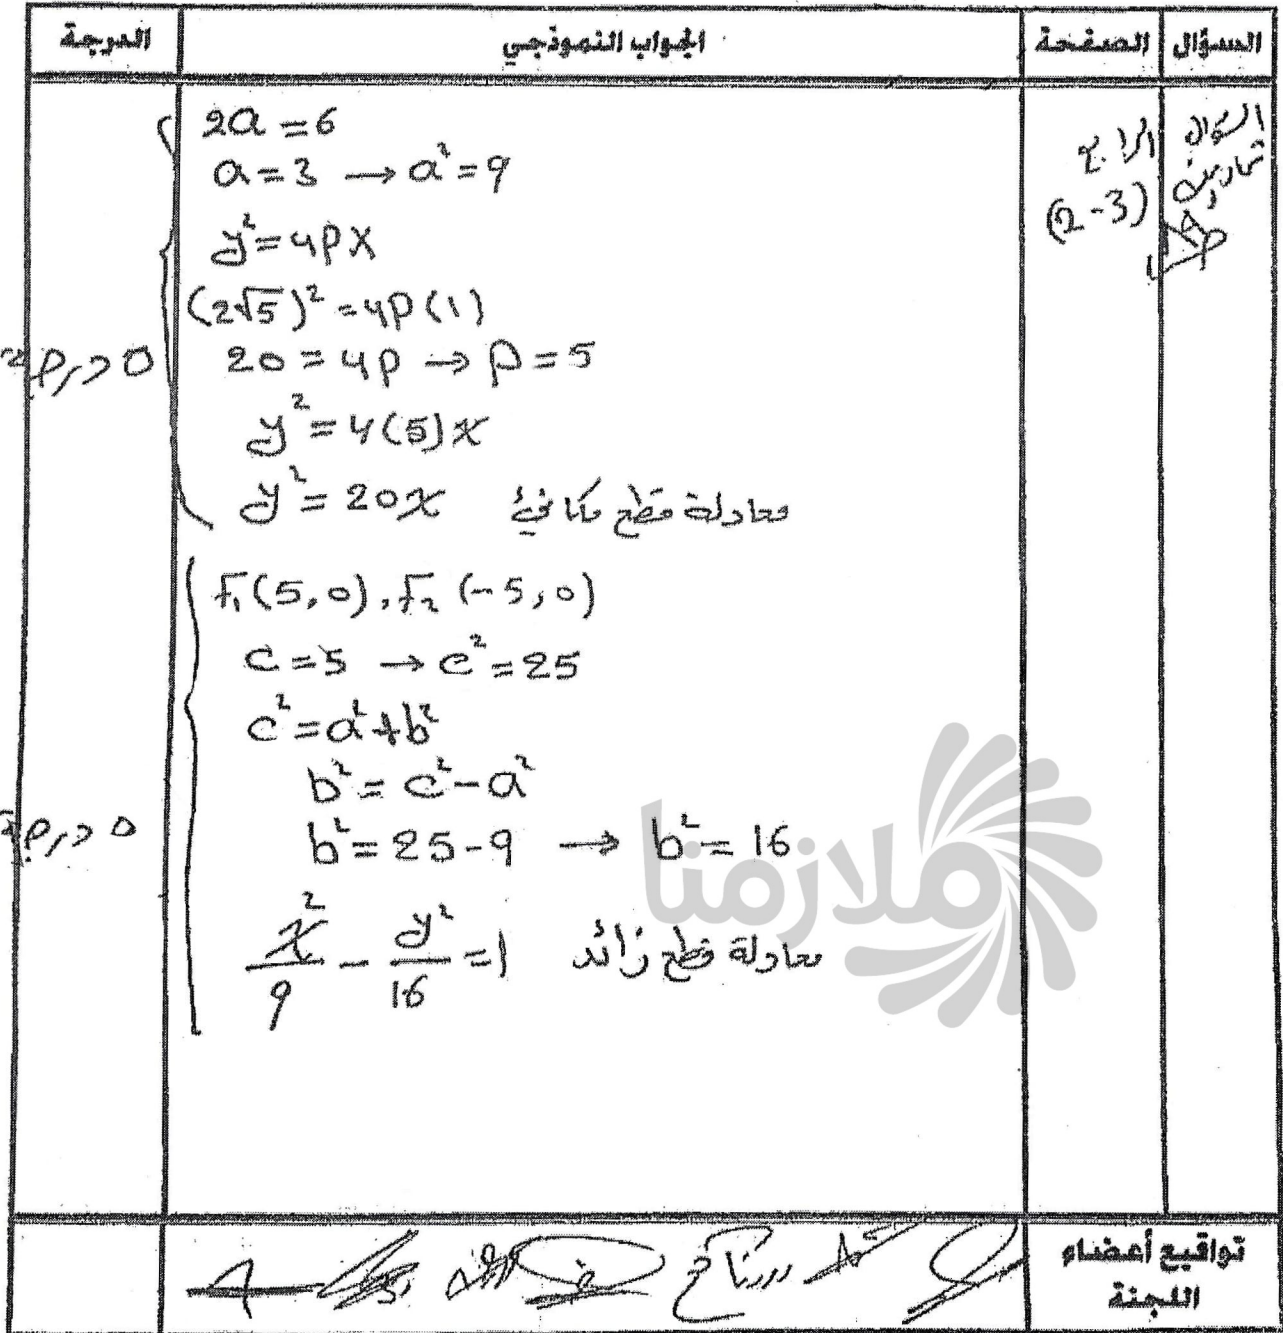 السؤال الصفحة الجواب النموذجي الدرجة
السؤال الرابع
تمارين (2-3)
2a = 6
a = 3 → a² = 9
y² = 4px
(2√5)² = 4p(1)
20 = 4p → p = 5
y² = 4(5)x
y² = 20x معادلة قطع مكافئ
٥ درجة
F₁(5,0), F₂(-5,0)
c = 5 → c² = 25
c² = a² + b²
b² = c² - a²
b² = 25 - 9 → b² = 16
x²/9 - y²/16 = 1 معادلة قطع زائد
٥ درجة
ملازمنا
تواقيع أعضاء
اللجنة